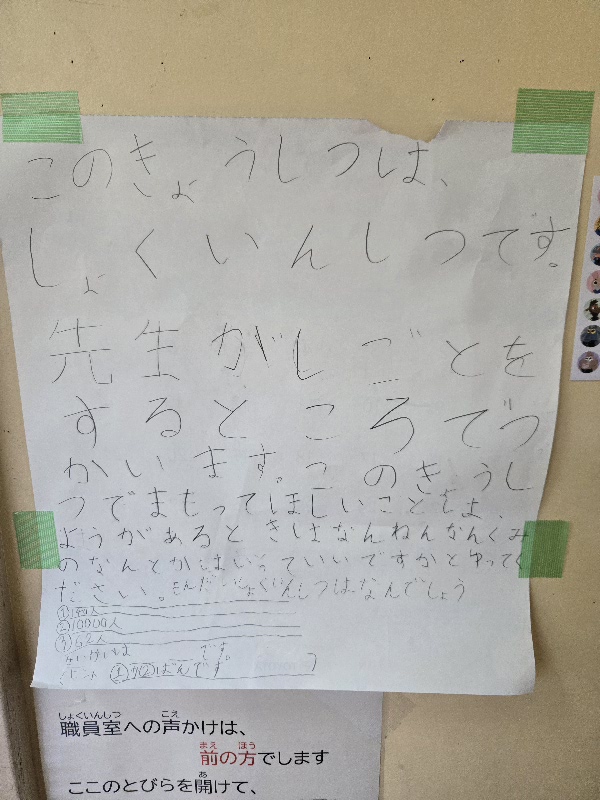 このきょうしつは、
しょくいんしつです。
先生がしごとを
するところでつ
かいます。このきょうし
つでまもってほしいことをよ、
ようがあるときはなんねんなんくみ
のなんとかはいっていいですかとゆってく
ださい。もんだいしょくいんしつはなんでしょう
②10000人
③62人
①か②ばんです
です。
しょくいんしつ こえ
職員室への声かけは、
まえ ほう
前の方でします
あ
ここのとびらを開けて、